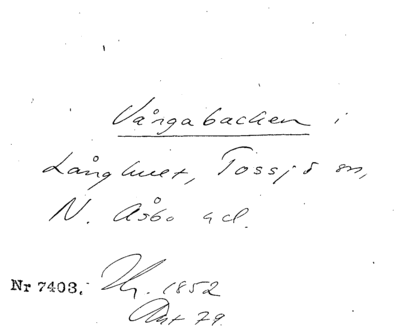 Vårgabacken i
Långhult, Tossjö sn,
N. Åsbo hd.
Nr 7403. 1852
Ant 79.